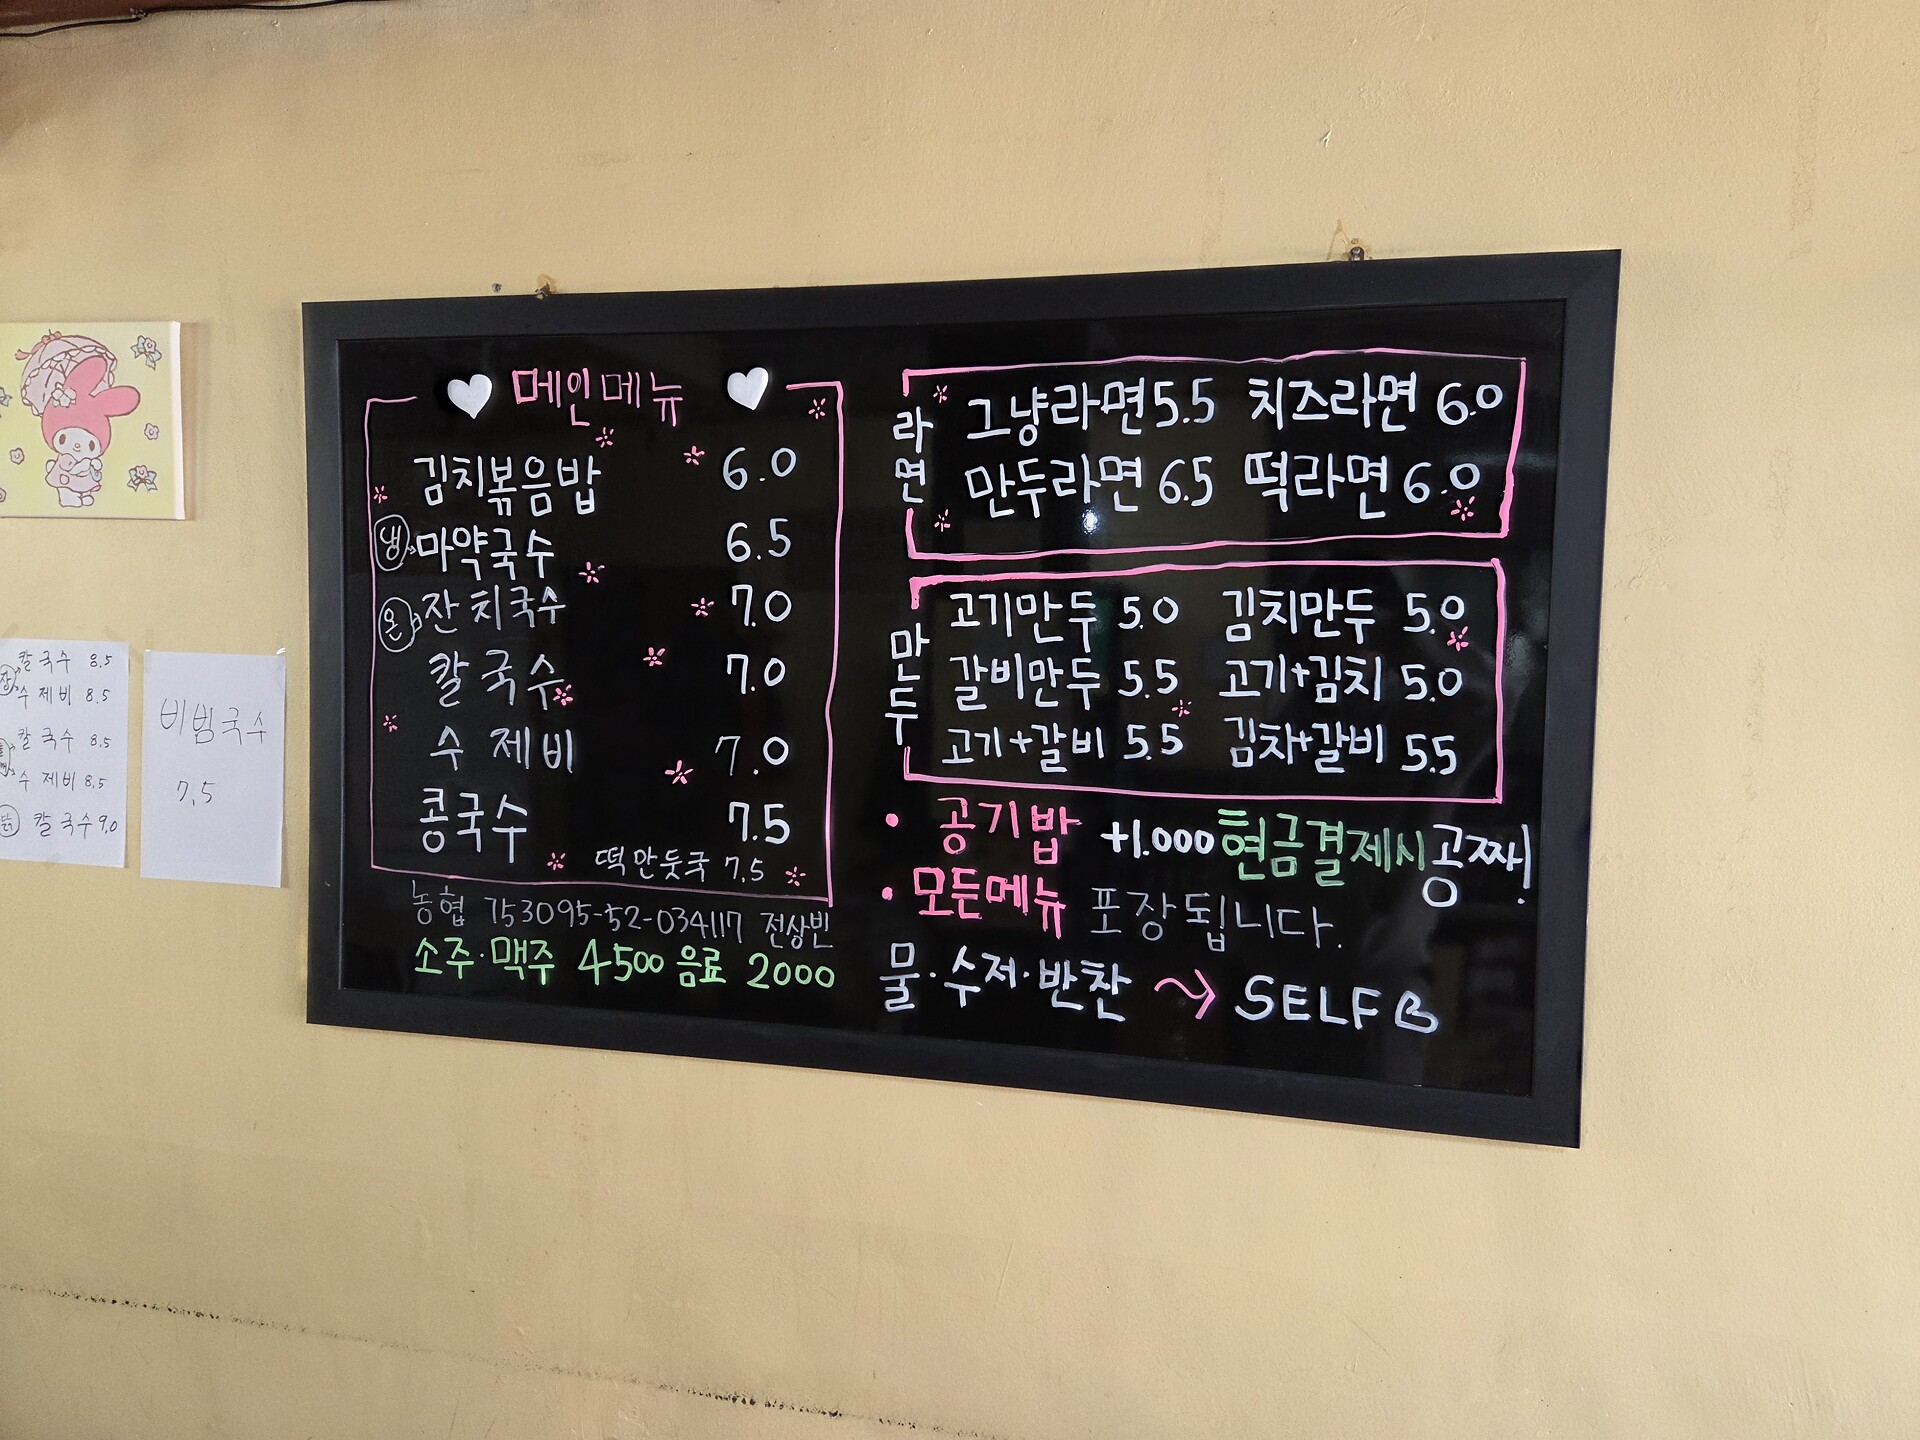 메인메뉴
김치볶음밥 6.0
냉 마약국수 6.5
온 잔치국수 7.0
칼국수 7.0
수제비 7.0
콩국수 7.5
떡만둣국 7.5
농협 753095-52-034117 전상빈
소주·맥주 4500 음료 2000
라면
그냥라면 5.5 치즈라면 6.0
만두라면 6.5 떡라면 6.0
만두
고기만두 5.0 김치만두 5.0
갈비만두 5.5 고기+김치 5.0
고기+갈비 5.5 김차+갈비 5.5
• 공기밥 +1.000 현금결제시 공짜!
• 모든메뉴 포장됩니다.
물·수저·반찬 → SELF
칼국수 8.5
수제비 8.5
칼국수 8.5
수제비 8.5
닭 칼국수 9.0
비빔국수
7.5